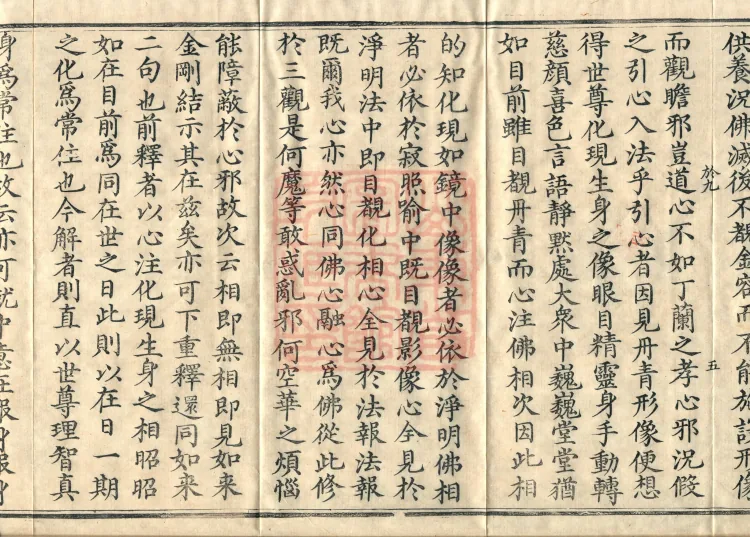 供養況佛滅後不覩金容而不能施設形像
而觀瞻邪豈道心不如丁蘭之孝心邪況假
之引心入法乎引心者因見丹青形像便想
得世尊化現生身之像眼目精靈身手動轉
慈顏喜色言語靜默處大衆中巍巍堂堂猶
如目前雖目覩丹青而心注佛相次因此相
的知化現如鏡中像像者必依於淨明佛相
者必依於寂照喻中既目覩影像心全見於
淨明法中即目覩化相心全見於法報法報
既爾我心亦然心同佛心融心為佛從此修
於三觀是何魔等敢惑亂邪何空華之煩惱
能障蔽於心邪故次云相即無相即見如來
金剛結示其在茲矣亦可下重釋還同如來
二句也前釋者以心注化現生身之相昭昭
如在目前為同在世之日此則以在日一期
之化為常住也今解者則直以世尊理智真
身為常住也故云亦可就中意在報身報身
於九
五